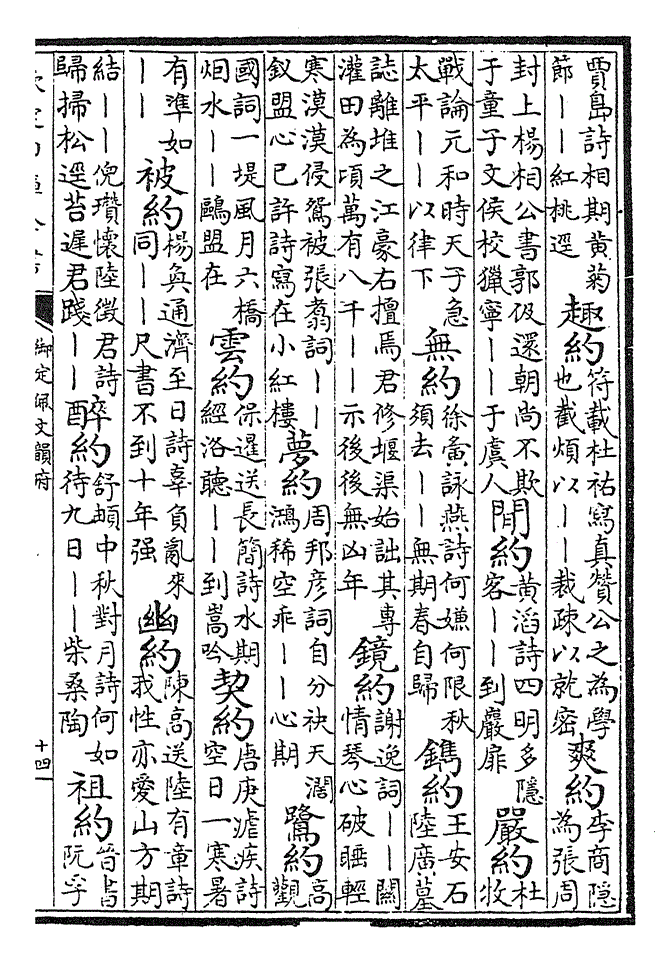 賈島詩相期黃菊
節――紅桃逕
趣約
符載杜祐寫真贊公之為學
也截煩以――裁疎以就密
爽約
李商隠
為張周
封上楊相公書郭伋還朝尚不欺
于童子文侯校獵寧――于虞人
閒約
黃滔詩四明多隠
客――到嚴扉
嚴約
杜
牧
戰論元和時天子急
太平――以律下
無約
徐夤詠燕詩何嫌何限秋
須去――無期春自歸
鐫約
王安石
陸廣墓
誌離堆之江豪右擅焉君修堰渠始詘其專
灌田為頃萬有八千――示後後無凶年
鏡約
謝逸詞――闗
情琴心破睡輕
寒漠漠侵鴛被張翥詞――
釵盟心已許詩寫在小紅樓
夢約
周邦彥詞自分袂天濶
鴻稀空乖――心期
鷺約
高
觀
國詞一堤風月六橋
烟水――鷗盟在
雲約
保暹送長簡詩水期
經洛聽――到嵩吟
契約
唐庚瘧疾詩
空日一寒暑
有準如
――
被約
楊奐通濟至日詩辜負亂來
同――尺書不到十年强
幽約
陳高送陸有章詩
我性亦愛山方期
結――倪瓚懷陸徵君詩
歸掃松逕苔遲君踐――
醉約
舒頔中秋對月詩何如
待九日――柴桑陶
祖約
晉書
阮孚
欽定四庫全書
御定佩文韻府
十四